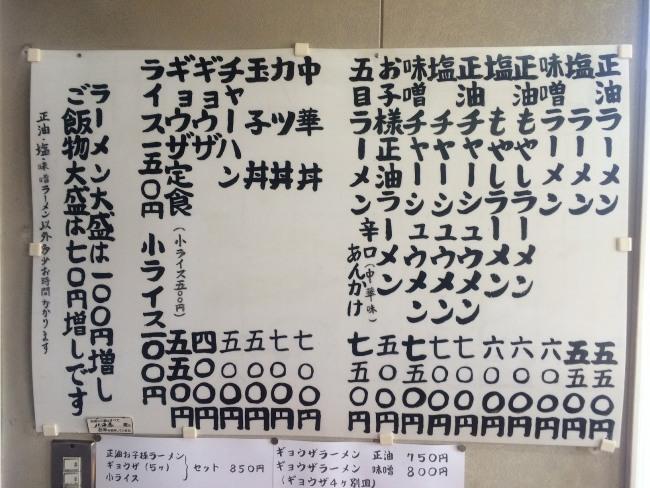 正油ラーメン 五五〇円
塩ラーメン 五五〇円
味噌ラーメン 六〇〇円
正油もやしラーメン 六〇〇円
塩もやしラーメン 六〇〇円
正油チャーシュウメン 七〇〇円
塩チャーシュウメン 七〇〇円
味噌チャーシュウメン 七五〇円
お子様正油ラーメン 五〇〇円
五目ラーメン 辛口(中華味)あんかけ 七五〇円
中華丼 七〇〇円
カツ丼 七〇〇円
玉子丼 五〇〇円
チャーハン 五〇〇円
ギョウザ 四〇〇円
ギョウザ定食 (小ライス五〇円) 五五〇円
ライス一五〇円 小ライス一〇〇円
ラーメン大盛は一〇〇円増し
ご飯物大盛は七〇円増しです
正油・塩・味噌ラーメン以外多少お時間かかります
正油お子様ラーメン
ギョウザ(5ヶ)
小ライス
セット 850円
ギョウザラーメン 正油 750円
ギョウザラーメン 味噌 800円
(ギョウザ4ヶ別皿)